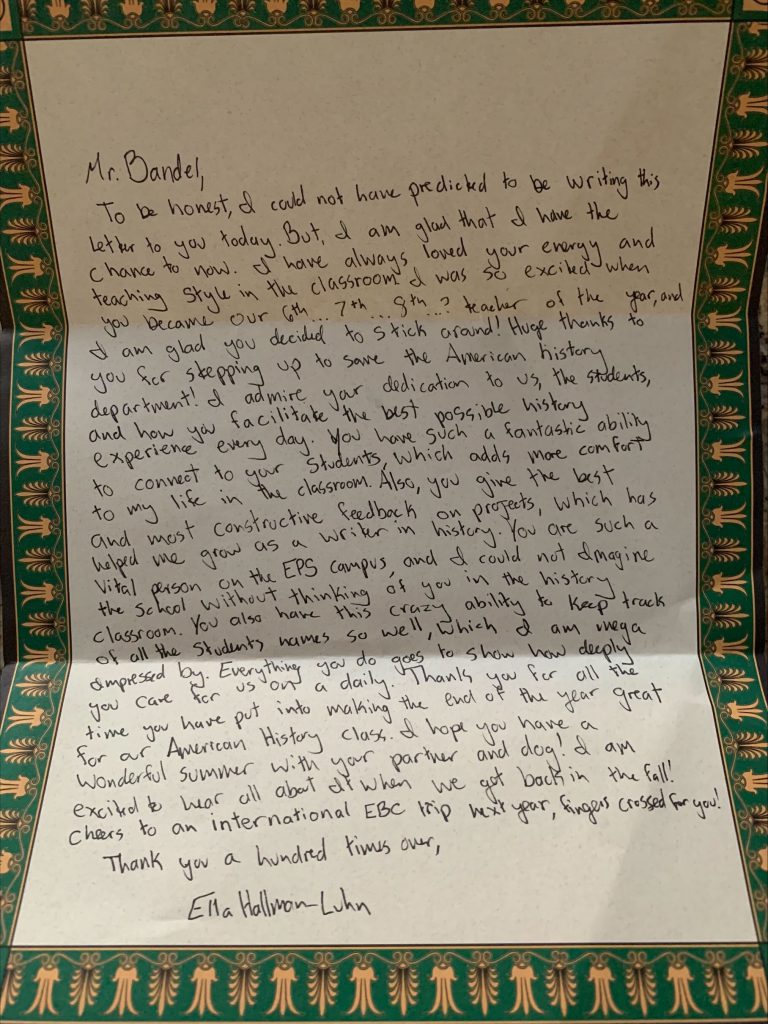 Mr. Bandel,
To be honest, I could not have predicted to be writing this
letter to you today. But, I am glad that I have the
chance to now. I have always loved your energy and
teaching style in the classroom. I was so excited when
you became our 6th... 7th... 8th...? teacher of the year, and
I am glad you decided to stick around! Huge thanks to
you for stepping up to save the American history
department! I admire your dedication to us, the students,
and how you facilitate the best possible history
experience every day. You have such a fantastic ability
to connect to your students, which adds more comfort
to my life in the classroom. Also, you give the best
and most constructive feedback on projects, which has
helped me grow as a writer in history. You are such a
vital person on the EPS campus, and I could not imagine
the school without thinking of you in the history
classroom. You also have this crazy ability to keep track
of all the students names so well, which I am mega
impressed by. Everything you do goes to show how deeply
you care for us on a daily. Thanks you for all the
time you have put into making the end of the year great
for our American History class. I hope you have a
wonderful summer with your partner and dog! I am
excited to hear all about it when we got back in the fall!
Cheers to an international EBC trip next year, fingers crossed for you!
Thank you a hundred times over,
Ella Hallmon-Luhn